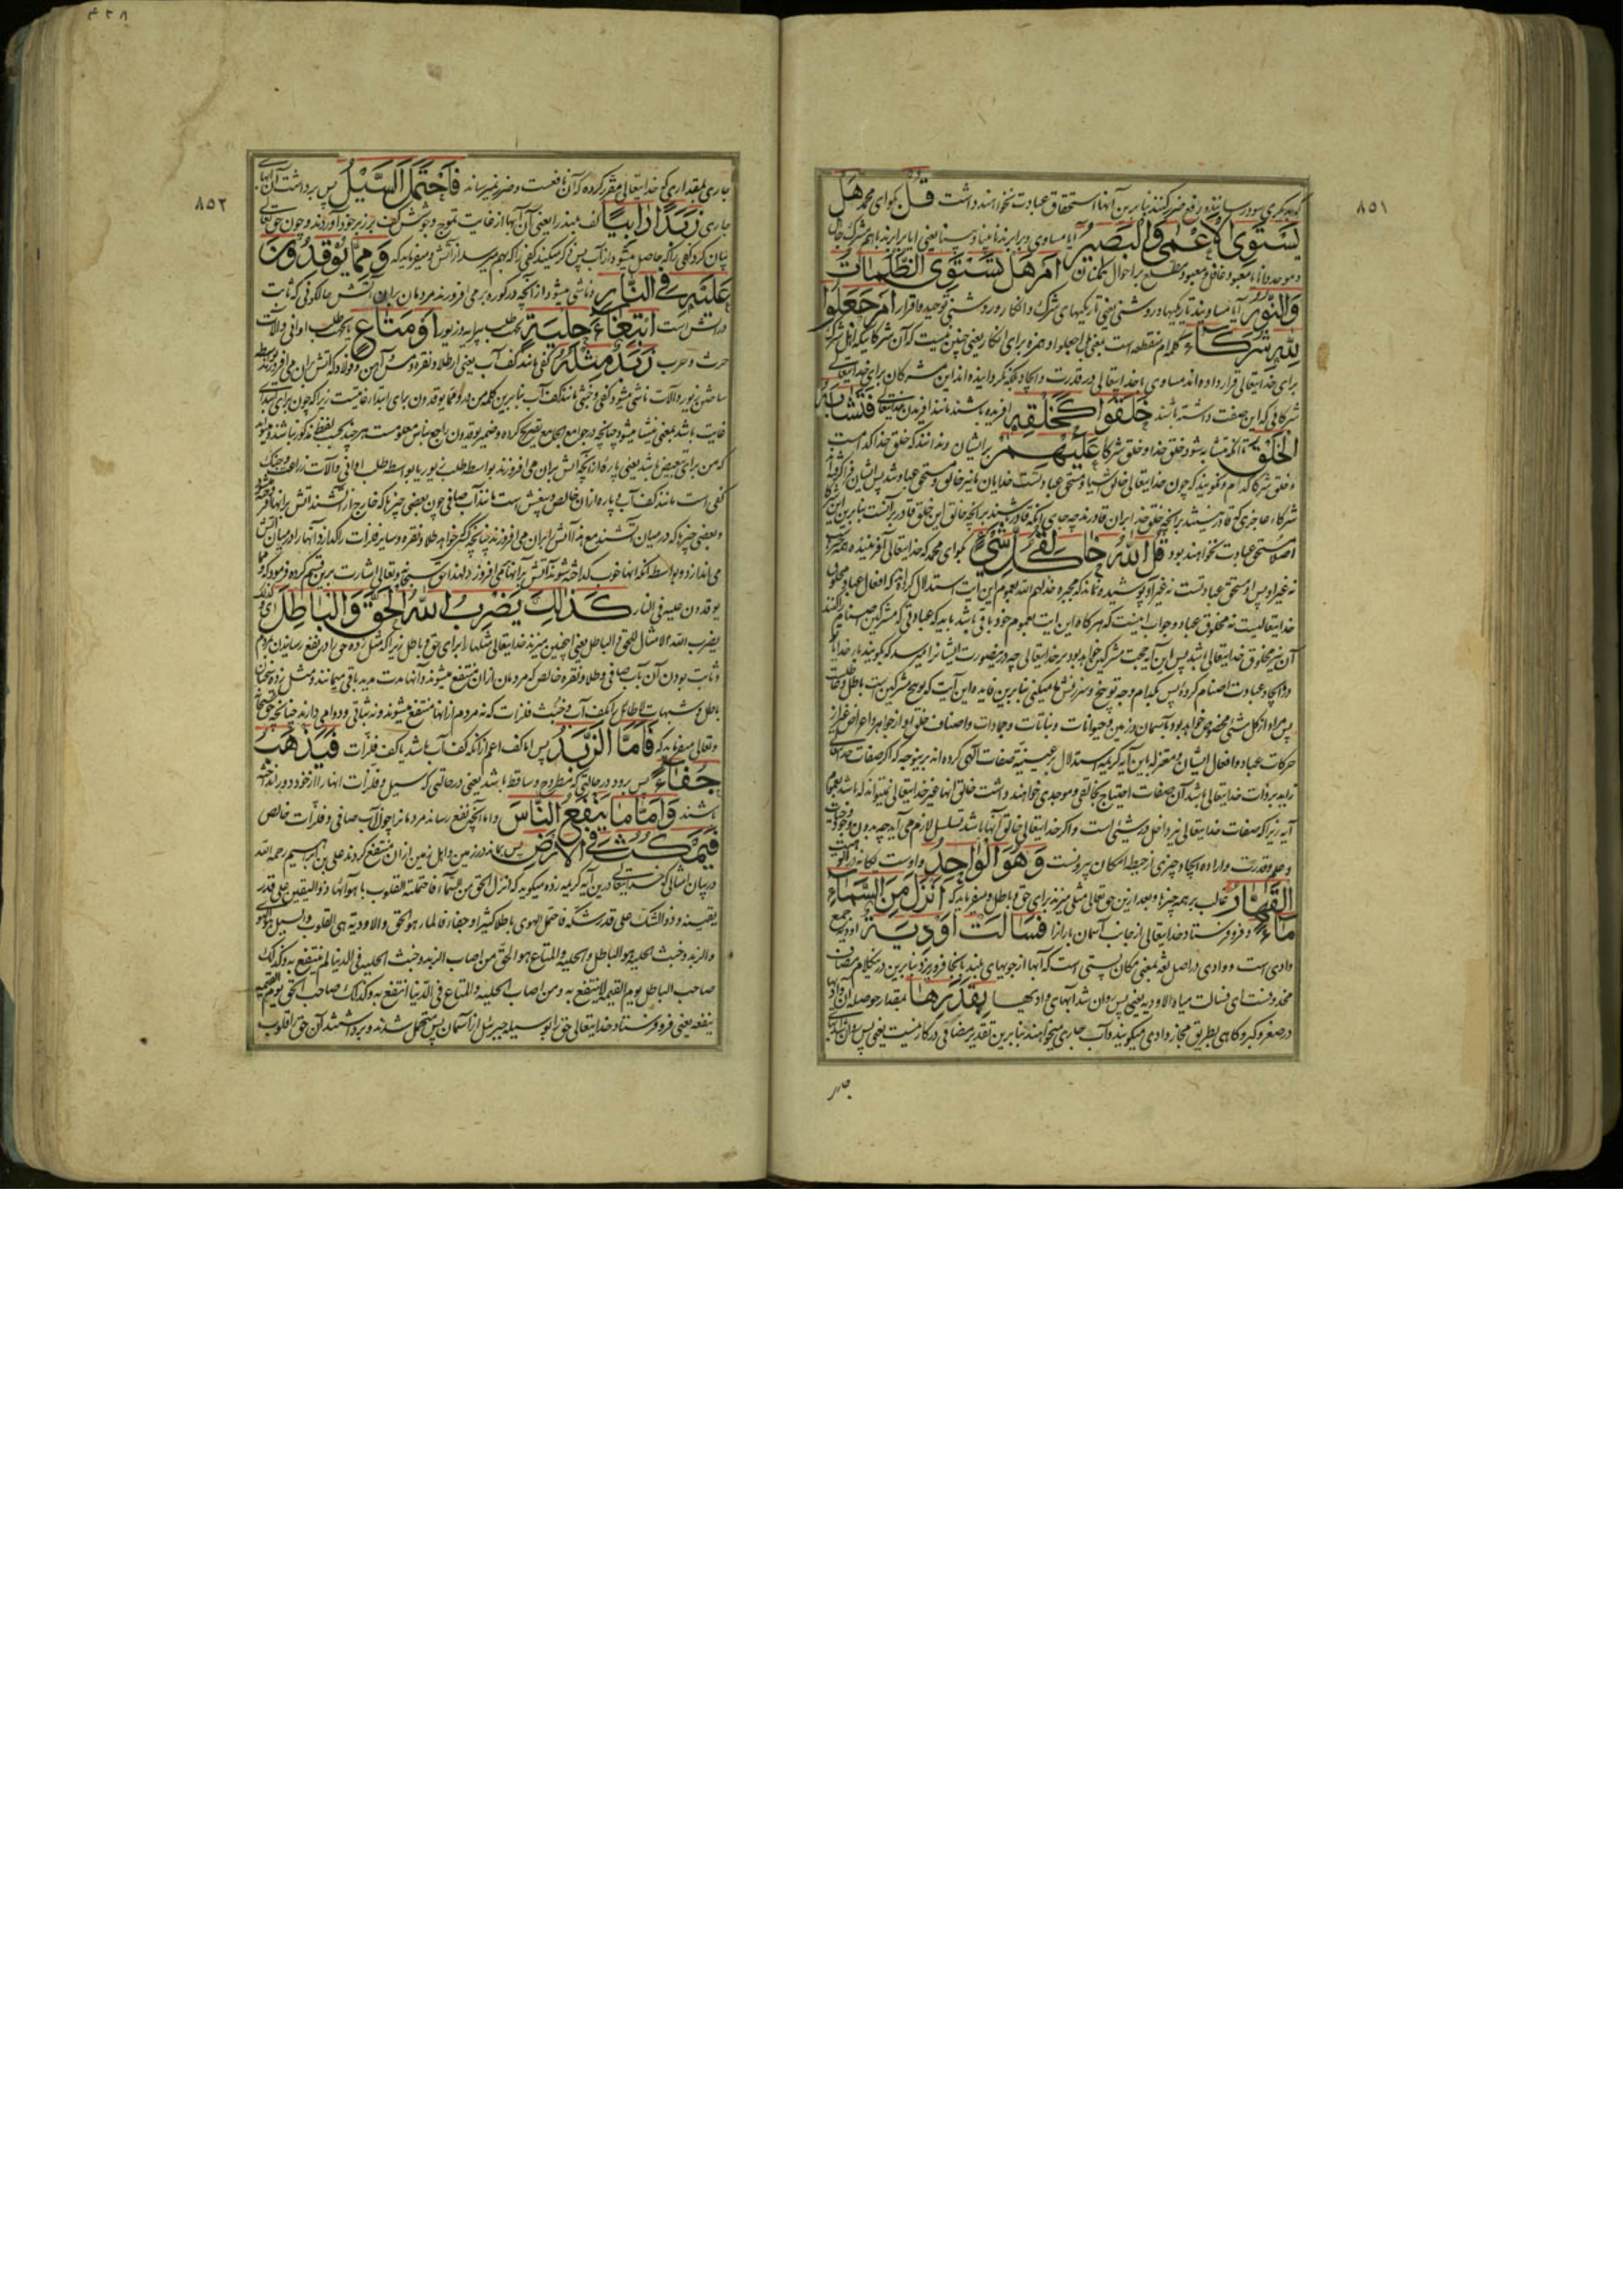 ٤٢٨
٨٥١
که بدیگری سود رسانند و دفع ضرر کنند بنابرین آنها استحقاق عبادت نخواهند داشت قُلْ بگو ای محمد هَلْ
يَسْتَوِي الْأَعْمٰى وَالْبَصِيرُ آیا مساوی و برابرند نابینا و بینا یعنی آیا برابرند باهم مشرک جاهل
و موحد دانا یا معبود غافل و معبود مطلع بر احوال همکنان أَمْ هَلْ تَسْتَوِي الظُّلُمَاتُ
وَالنُّورُ آیا مساویند تاریکیها و روشنی یعنی تاریکیهای شرک و انکار و روشنی توحید و اقرار أَمْ جَعَلُوا
لِلّٰهِ شُرَكَاءَ کلمه ام منقطعه است بمعنی بل اجعلوا و همزه برای انکار یعنی چنین نیست که آن شرکا که اهل شرک
برای خدایتعالی قرار داده اند مساوی با خدایتعالی در قدرت و ایجاد بلکه نگردانیده اند این مشرکان برای خدایتعالی
شرکائی که این صفت داشته باشند خَلَقُوا كَخَلْقِهِ آفریده باشند مانند آفریدن خدایتعالی فَتَشَابَهَ
الْخَلْقُ تا آنکه متشابه شود خلق خدا و خلق شرکا عَلَيْهِمْ بر ایشان و ندانند که خلق خدا کدامست
و خلق شرکا کدام و بگویند که چون خدایتعالی خالق اشیا و مستحق عبادتست خدایان ما نیز خالق و مستحق عبادند پس ایشان
شرکاء عاجزی که قادر نیستند بر آنچه خلق خدا بران قادرند چه جای آنکه قادر باشند بر آنچه خالق این خلق قادر بر آنست بنابرین این شرکا
اصلا مستحق عبادت نخواهند بود قُلِ اللّٰهُ خَالِقُ كُلِّ شَيْءٍ بگو ای محمد که خدایتعالی آفریننده همه چیزست
نه غیر او پس او مستحق عبادتست نه غیر او پوشیده نماند که مجبره خذلهم الله بعموم این آیت استدلال کرده اند که افعال عباد مخلوق
خدایتعالیست نه مخلوق عباد و جواب اینست که هرگاه این آیت بعموم خود باقی باشد باید که عبادتی که مشرکین اصنام را میکنند
آن نیز مخلوق خدایتعالی باشد پس این آیه حجت مشرکین خواهد بود بر خدایتعالی چه درینصورت ایشانرا میرسد که بگویند بار خدایا
تو ایجاد عبادت اصنام کرده پس بکدام وجه توبیخ و سرزنش ما میکنی بنابرین فایده این آیت که توبیخ مشرکین است باطل
پس مراد از کل شئ مخصوص خواهد بود بآسمان و زمین و حیوانات و نباتات و جمادات و اصناف خلق او از جواهر و اعراض غیر از
حرکات عباد و افعال ایشان و معتزله باین آیه کریمه استدلال بر عینیت صفات آلهی کرده اند برینوجه که اگر صفات خدای
زاید بر ذات خدایتعالی باشد آن صفات احتیاج بخالقی و موجدی خواهند داشت خالق آنها غیر خدایتعالی نمیتواند که باشد بعموم
آیه زیرا که صفات خدایتعالی نیز داخل در شئی است و اگر خدایتعالی خالق آنها باشد تسلسل لازم می آید چه بدون وجود
و علم و قدرت و اراده ایجاد چیزی از حیطه امکان بیرونست وَهُوَ الْوَاحِدُ و اوست یگانه در الوهیت
الْقَهَّارُ غالب بر همه چیزها و بعد ازین حق تعالی مثلی میزند برای حق و باطل و میفرماید که أَنْزَلَ مِنَ السَّمَاءِ
مَاءً فرو فرستاد خدایتعالی از جانب آسمان باران را فَسَالَتْ أَوْدِيَةٌ اودیه جمع
وادی است و وادی در اصل لغه بمعنی مکان پستی است که آبها از جویهای بلند بآنجا فرو ریزد بنابرین در کلام مضاف
محذوفست ای فسالت میاه الاودیه یعنی پس روان شد آبهای وادیها بِقَدَرِهَا بمقدار حوصله آن وادیها
در صغر و کبر و گاهی بطریق مجاز وادی میگویند و آب جاری میخواهند بنابرین تقدیر مضافی در کار نیست یعنی پس روان شد
جار
٨٥٢
جاری بمقداری که خدایتعالی مقرر کرده که آن نافعست و ضرر نمیرساند فَاحْتَمَلَ السَّيْلُ پس برداشت آن آبهای
جاری زَبَدًا رَابِيًا کف بلند را یعنی آن آبها از غایت تموج و جوشش کف بر زبر خود آوردند و چون حق تعالی
بیان کرد کفی را که حاصل میشود از آب پس ذکر میکند کفی را که بهم میرسد از آتش و میفرماید که وَمِمَّا يُوقِدُونَ
عَلَيْهِ فِي النَّارِ و ناشی میشود از آنچه در کوره بر می افروزند مردمان بران آتش حالکونی که ثابت
در آتش است ابْتِغَاءَ حِلْيَةٍ بجهت طلب پیرایه و زیور أَوْ مَتَاعٍ یا بجهت طلب اوانی و آلات
حرث و حرب زَبَدٌ مِثْلُهُ کفی مانند کف آب یعنی از طلا و نقره و مس و آهن و فولاد که آتش بران می افروزند بواسطه
ساختن زیور و آلات ناشی میشود کفی و خبثی مانند کف آب بنابرین کلمه من در و مما یوقدون برای ابتداء غایتست زیرا که چون برای ابتدای
غایت باشد بمعنی ینشا میشود چنانچه در جوامع الجامع تصریح کرده و ضمیر یوقدون راجع بناس معلومست هر چند بحسب لفظ مذکور نباشد و میتواند
که من برای تبعیض باشد یعنی پاره از آنچه آتش بران می افروزند بواسطه طلب زیور یا بواسطه طلب اوانی و آلات زراعت و جنگ
کفی است مانند کف آب و پاره از ان خالص و بیغش است مانند آب صافی چون بعضی چیزها که خارج از آتشند آتش بر آنها افروخته میشود
و بعضی چیزها که در میان آتشند مع هذا آتش بران می افروزند چنانچه زرگر خواهد طلا و نقره و سایر فلزات را گدازد آنها را در میان آتش
می اندازد و بواسطه آنکه آنها خوب گداخته شوند آتش بر آنها می افروزد لهذا حق سبحانه و تعالی اشارت برین قسم کرده فرمود که و مما
یوقدون علیه فی النار كَذٰلِكَ يَضْرِبُ اللّٰهُ الْحَقَّ وَالْبَاطِلَ ای کذلک
یضرب الله الامثال للحق و الباطل یعنی اینچنین میزند خدایتعالی مثلها را برای حق و باطل زیرا که مثل زده حق را در نفع رسانیدن بمردم
و ثابت بودن آن بآب صافی و طلا و نقره خالص که مردمان از ان منتفع میشوند و آنها مدت مدید باقی میمانند و مثل زده
باطل و شبهات لا طائل را بکف آب و خبث فلزات که نه مردم از آنها منتفع میشوند و نه ثباتی و دوامی دارند چنانچه حق سبحانه
و تعالی میفرماید که فَأَمَّا الزَّبَدُ پس اما کف اعم از آنکه کف آب باشد یا کف فلزات فَيَذْهَبُ
جُفَاءً پس برود در حالتی که مطروح و ساقط باشد یعنی در حالتی که سیل و فلزات آنها را از خود دور انداخته
باشند وَأَمَّا مَا يَنْفَعُ النَّاسَ و اما آنچه نفع رساند مردمانرا چون آب صافی و فلزات خالص
فَيَمْكُثُ فِي الْأَرْضِ پس بماند در زمین و اهل زمین از ان منتفع گردند علی بن ابراهیم رحمه الله
در بیان امثالی که خدایتعالی درین آیه کریمه زده میگوید که انزل الحق من السماء فاحتملته القلوب باهوائها ذو الیقین علی قدر
یقینه و ذو الشک علی قدر شکه فاحتمل الهوی باطلا کثیرا و جفاء فالماء هو الحق و الاودیة هی القلوب و السیل هو الهوی
و الزبد و خبث الحلیه هو الباطل و الحلیه و المتاع هو الحق من اصاب الزبد و خبث الحلیه فی الدنیا لم ینتفع به و کذلک
صاحب الباطل یوم القیمه لا ینتفع به و من اصاب الحلیه و المتاع فی الدنیا انتفع به و کذلک صاحب الحق یوم القیمه
ینفعه یعنی فرو فرستاد خدایتعالی حق را بوسیله جبرئیل از آسمان پس متحمل شدند و برداشتند آن حق را قلوب